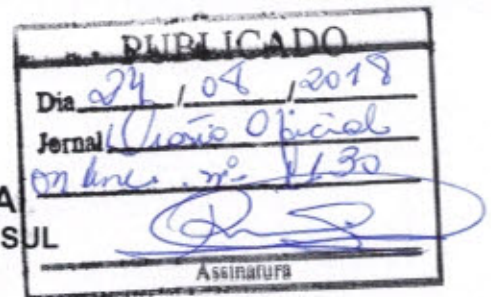 PUBLICADO
Dia 24 / 08 / 2018
Jornal Diário Oficial
on line. nº 1130
A
SUL
Assinatura